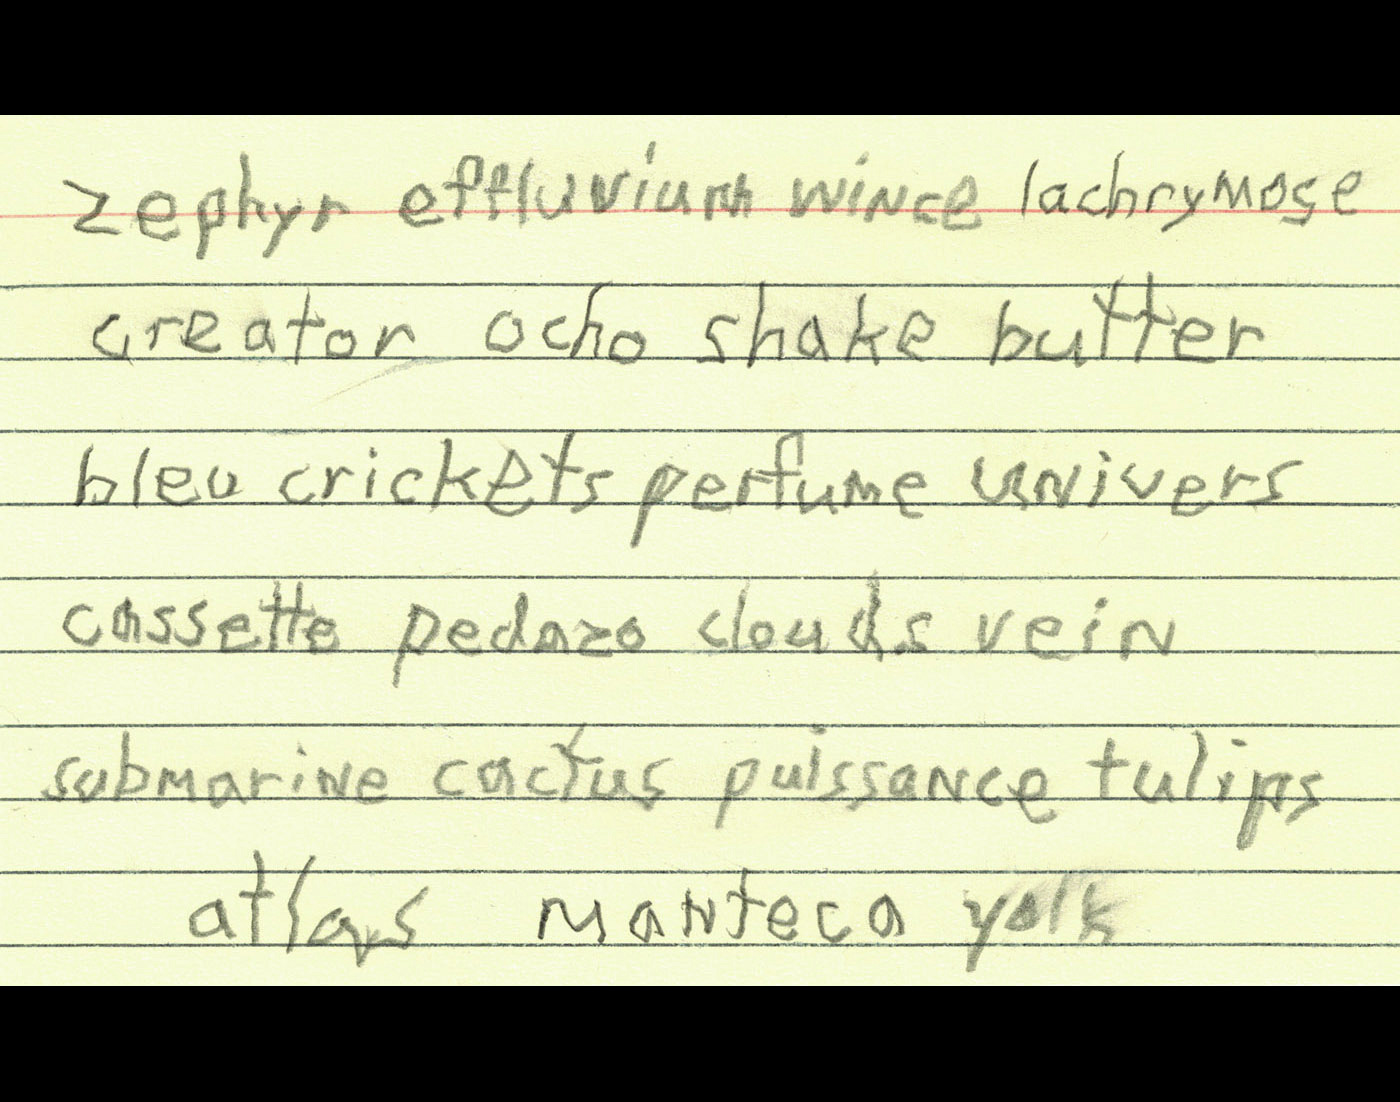 zephyr effluvium wince lachrymose
creator ocho shake butter
bleu crickets perfume univers
cassette pedazo clouds vein
submarine cactus puissance tulips
atlas manteca yolk